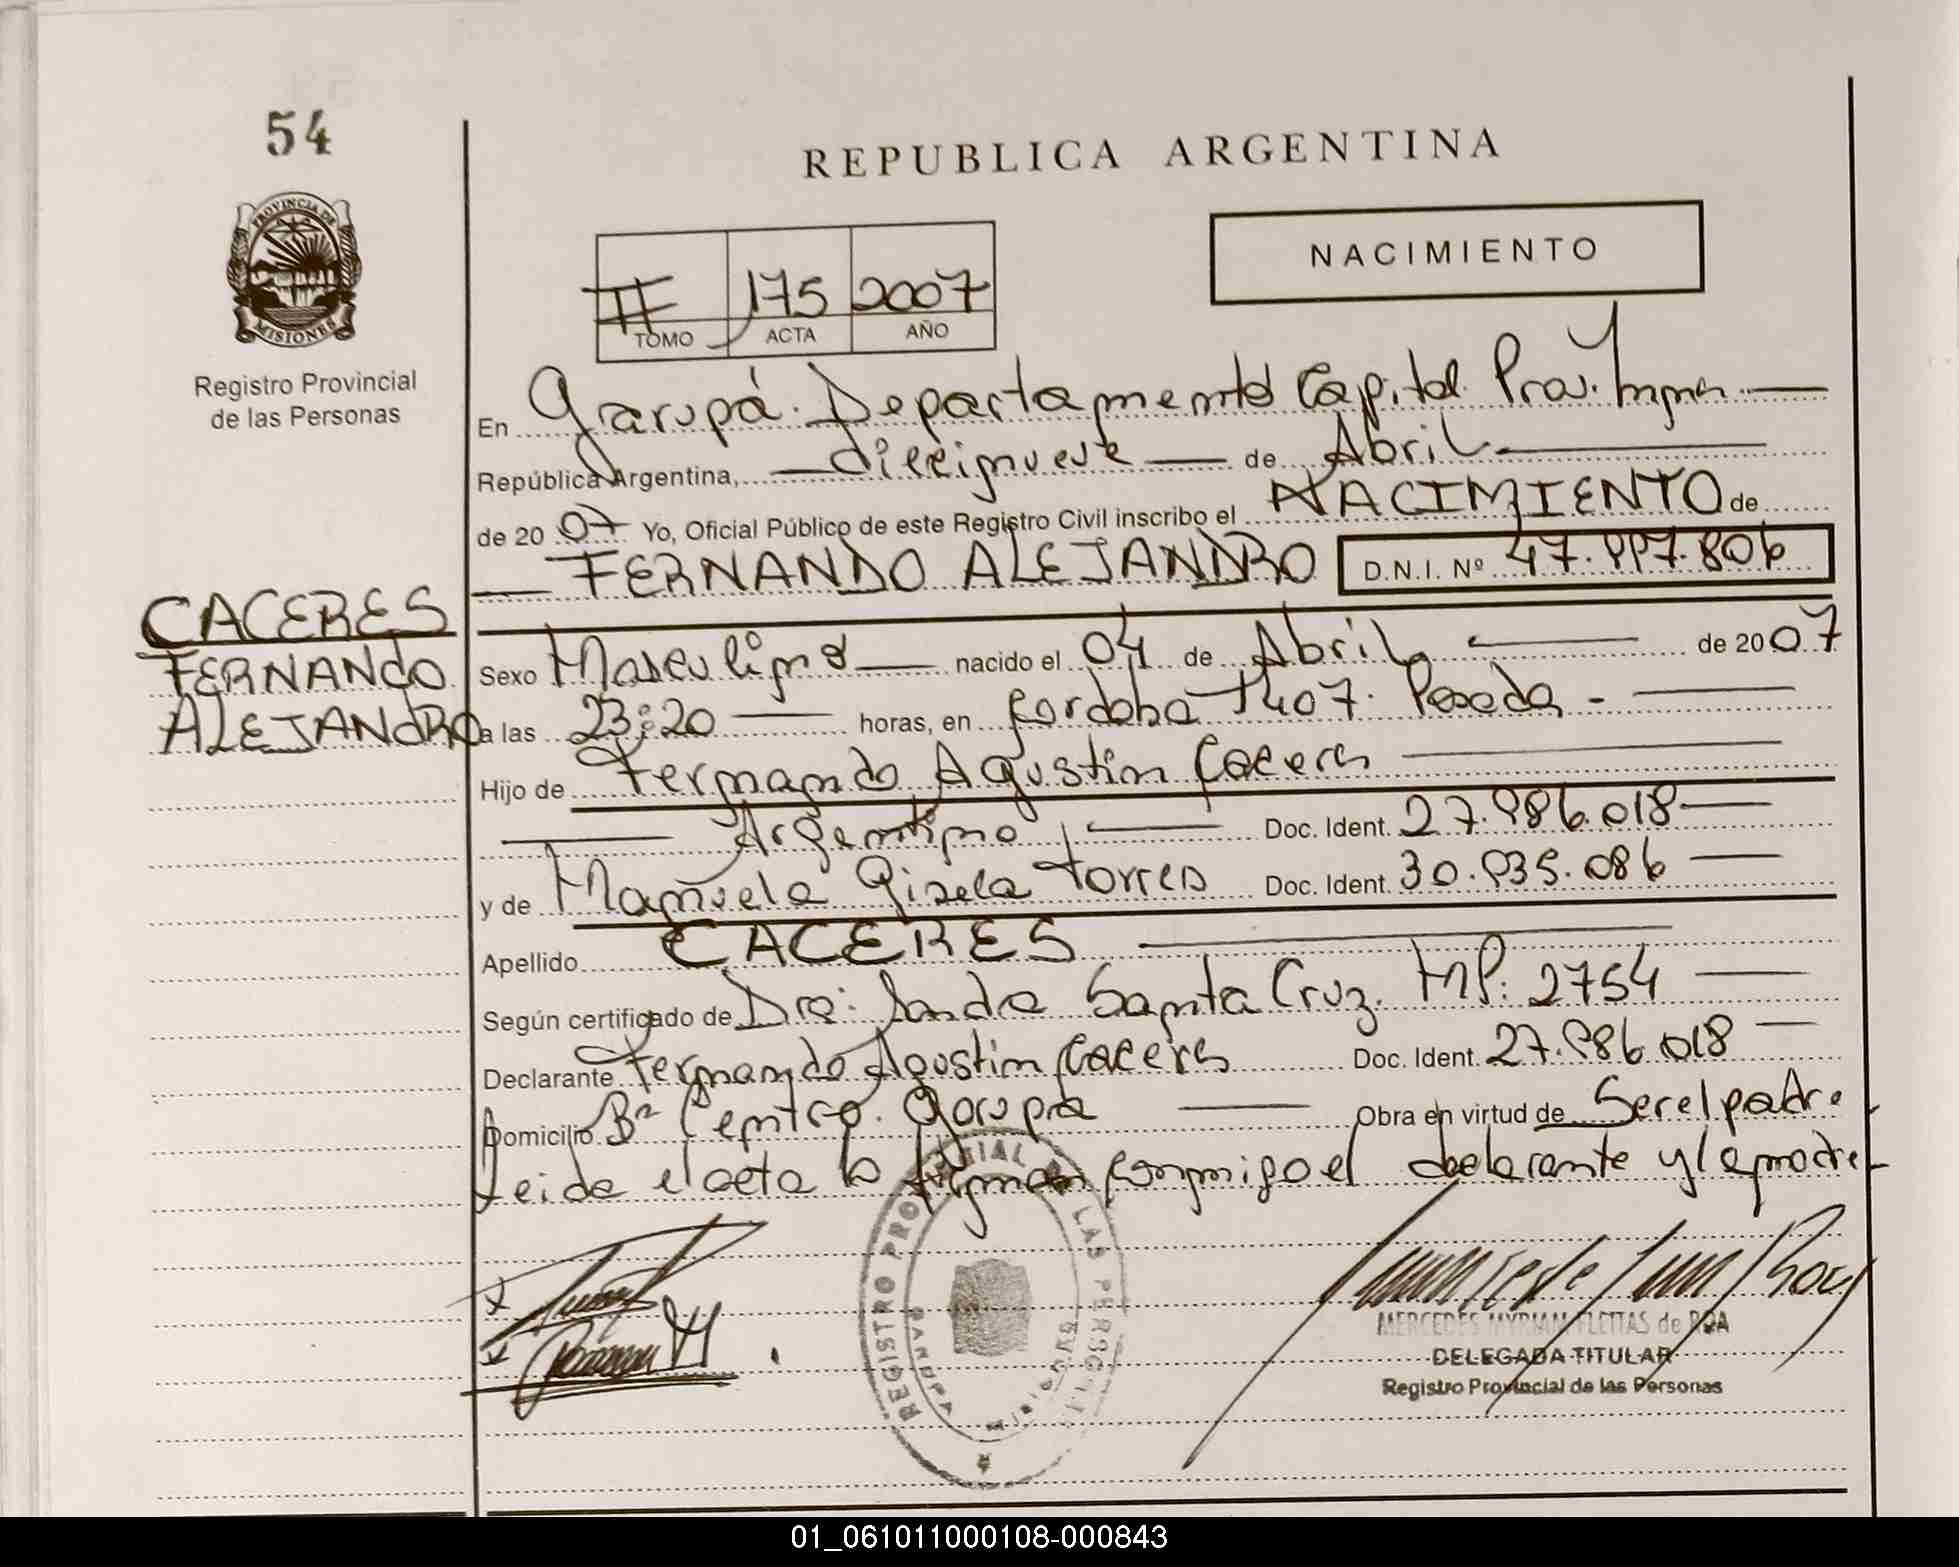 54
REPUBLICA ARGENTINA
PROVINCIA DE
MISIONES
Registro Provincial
de las Personas
NACIMIENTO
II 175 2007
TOMO ACTA AÑO
En Garupá. Departamento Capital Prov. Mnes.
República Argentina, diecinueve de Abril
de 20 07 Yo, Oficial Público de este Registro Civil inscribo el NACIMIENTO de
FERNANDO ALEJANDRO D.N.I. Nº 47.997.806
CACERES
FERNANDO
ALEJANDRO
Sexo Masculino nacido el 04 de Abril de 20 07
a las 23:20 horas, en Cordoba 1407. Posadas
Hijo de Fernando Agustin Caceres
Argentino Doc. Ident. 27.986.018
y de Manuela Gisela Torres Doc. Ident. 30.935.086
Apellido CACERES
Según certificado de Dra: Sandra Santa Cruz. MP: 2754
Declarante Fernando Agustin Caceres Doc. Ident. 27.986.018
Domicilio Bº Centro. Garupá Obra en virtud de Ser el padre
Leida el acta la firman conmigo el declarante y la madre
REGISTRO PROVINCIAL DE LAS PERSONAS
GARUPA
MISIONES
MERCEDES MYRIAM FLEITAS de ROA
DELEGADA TITULAR
Registro Provincial de las Personas
01_061011000108-000843